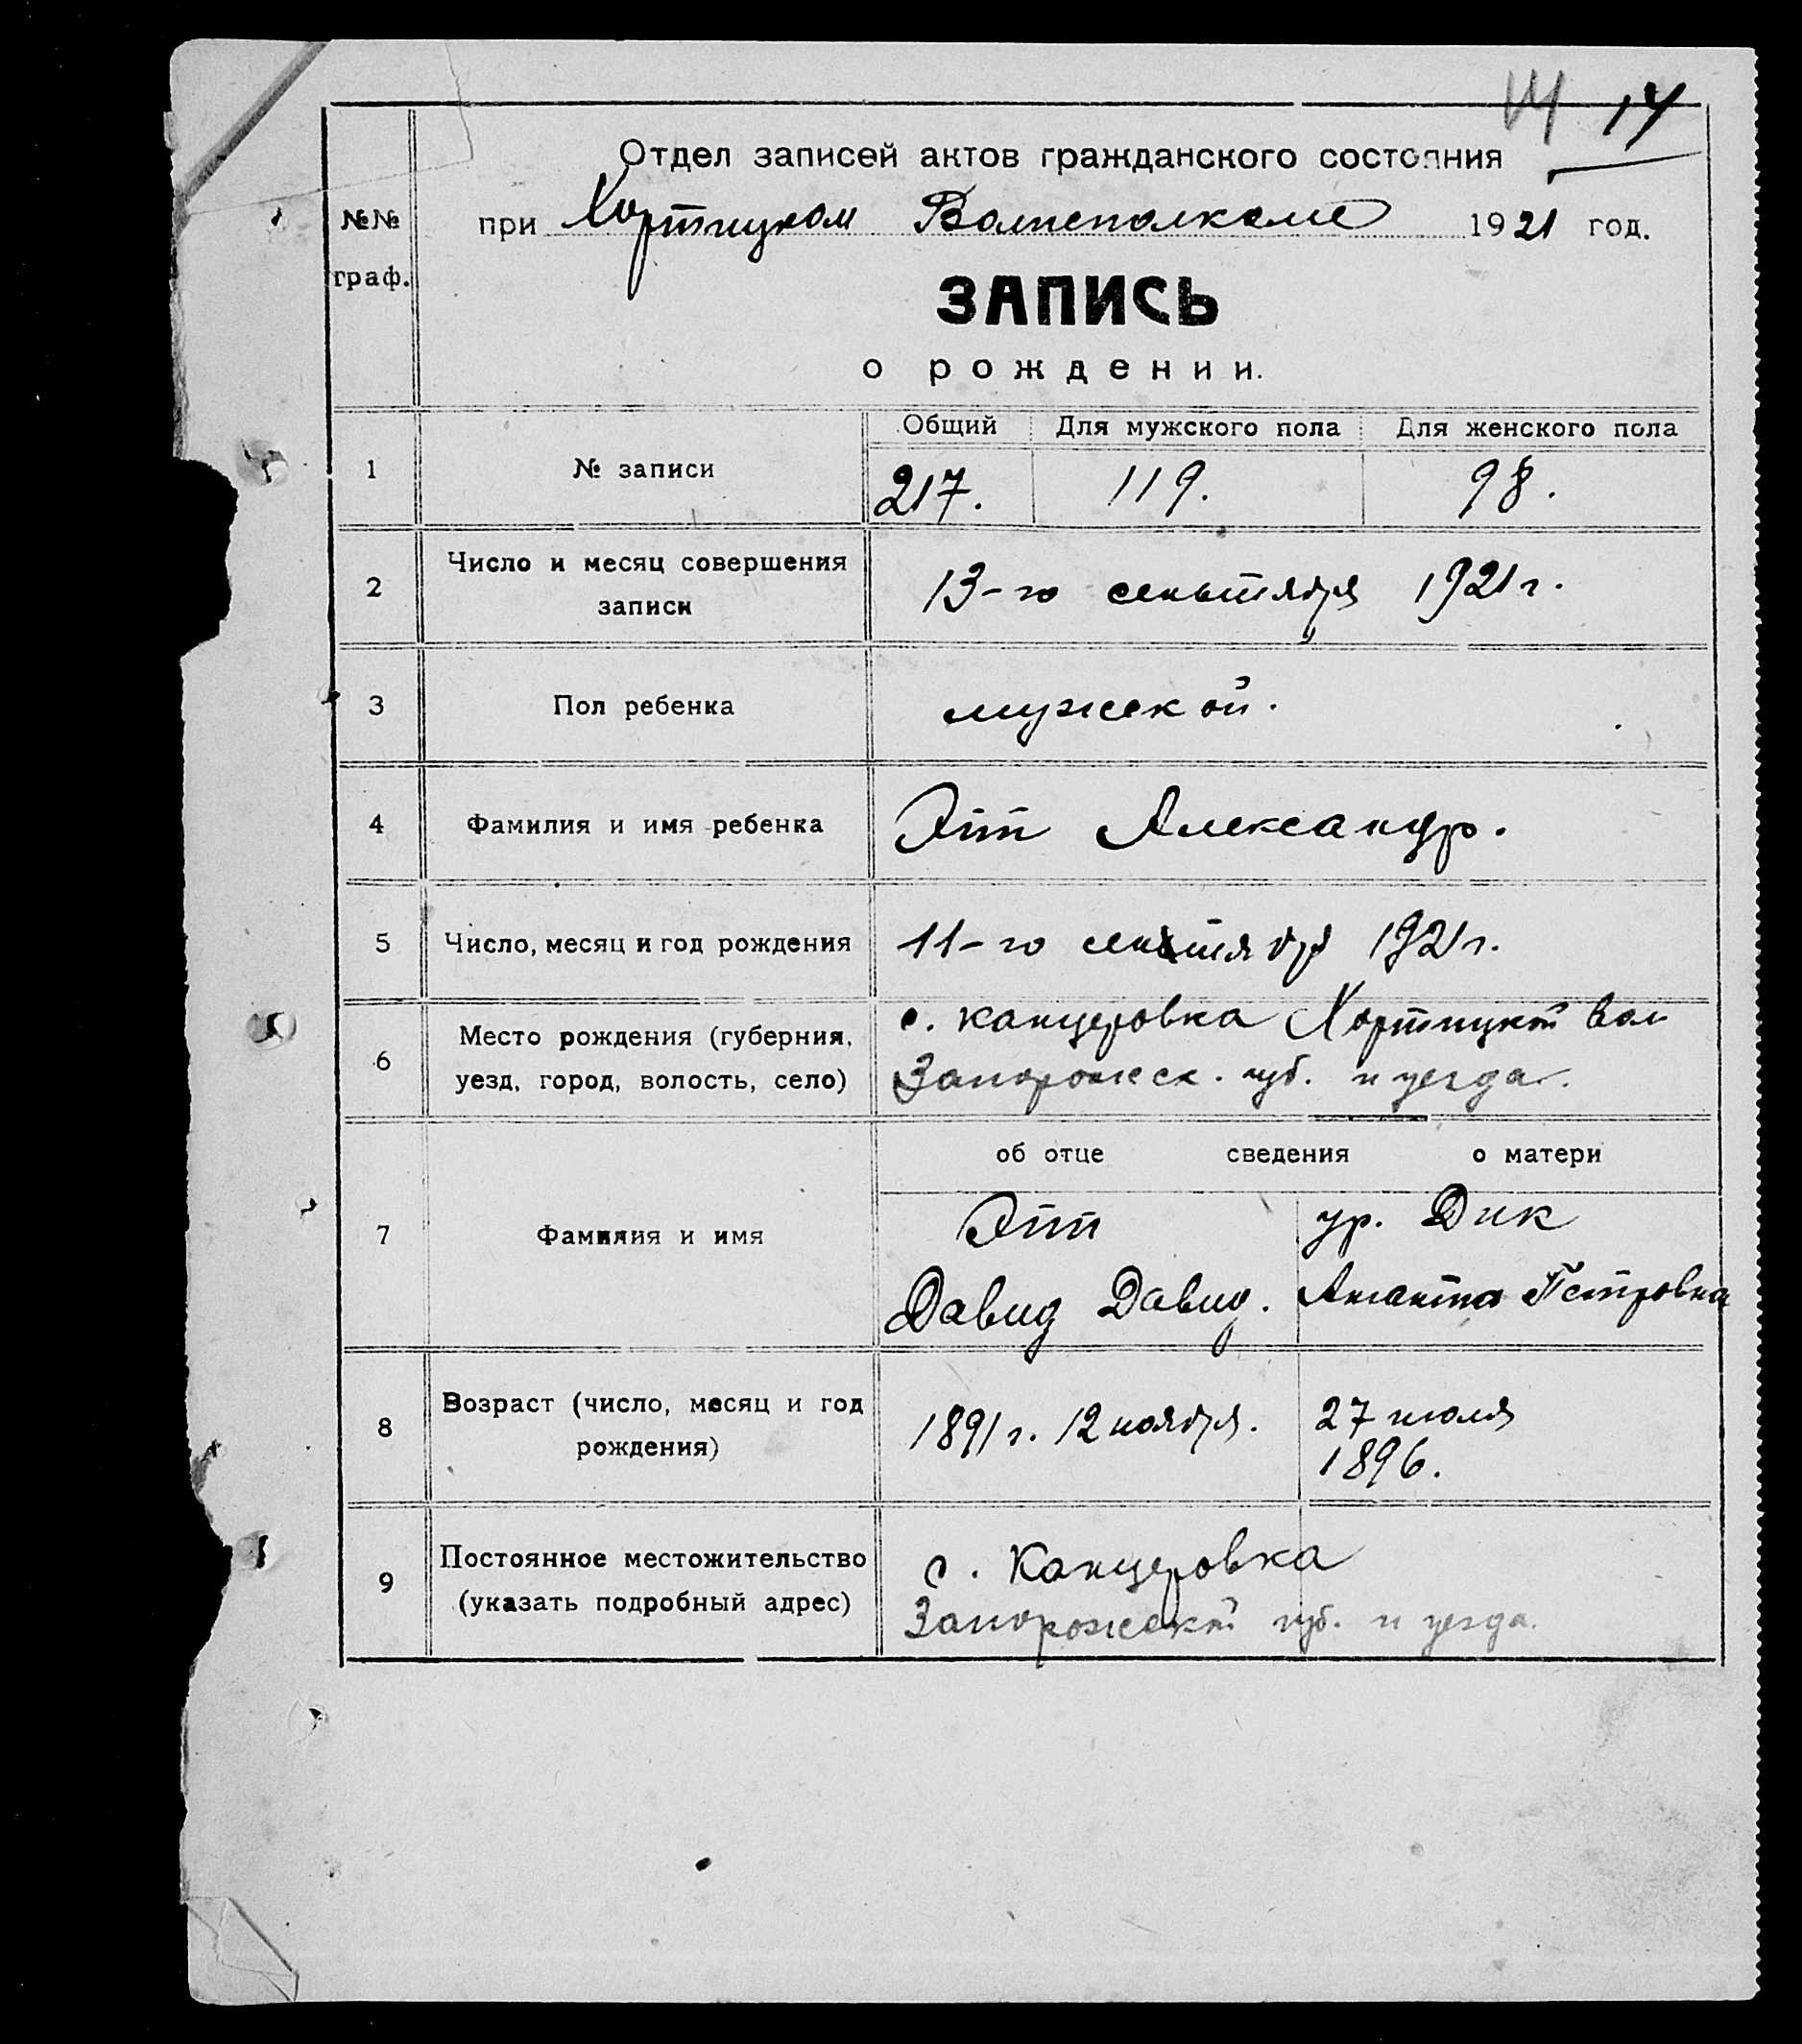 14 14
Отдел записей актов гражданского состояния
№№ граф.
при Хортицком Волисполкоме 1921 год.
ЗАПИСЬ
о рождении.
Общий Для мужского пола Для женского пола
1 № записи 217. 119. 98.
2 Число и месяц совершения записи 13-го сентября 1921 г.
3 Пол ребенка мужской.
4 Фамилия и имя ребенка Эпп Александр.
5 Число, месяц и год рождения 11-го сентября 1921 г.
6 Место рождения (губерния, уезд, город, волость, село) с. Канцеровка Хортицкой вол
Запорожск. губ. и уезда.
об отце сведения о матери
7 Фамилия и имя
Эпп ур. Дик
Давид Давид. Аганета Петровна
8 Возраст (число, месяц и год рождения) 1891 г. 12 ноября. 27 июля
1896.
9 Постоянное местожительство (указать подробный адрес) с. Канцеровка
Запорожской губ. и уезда.